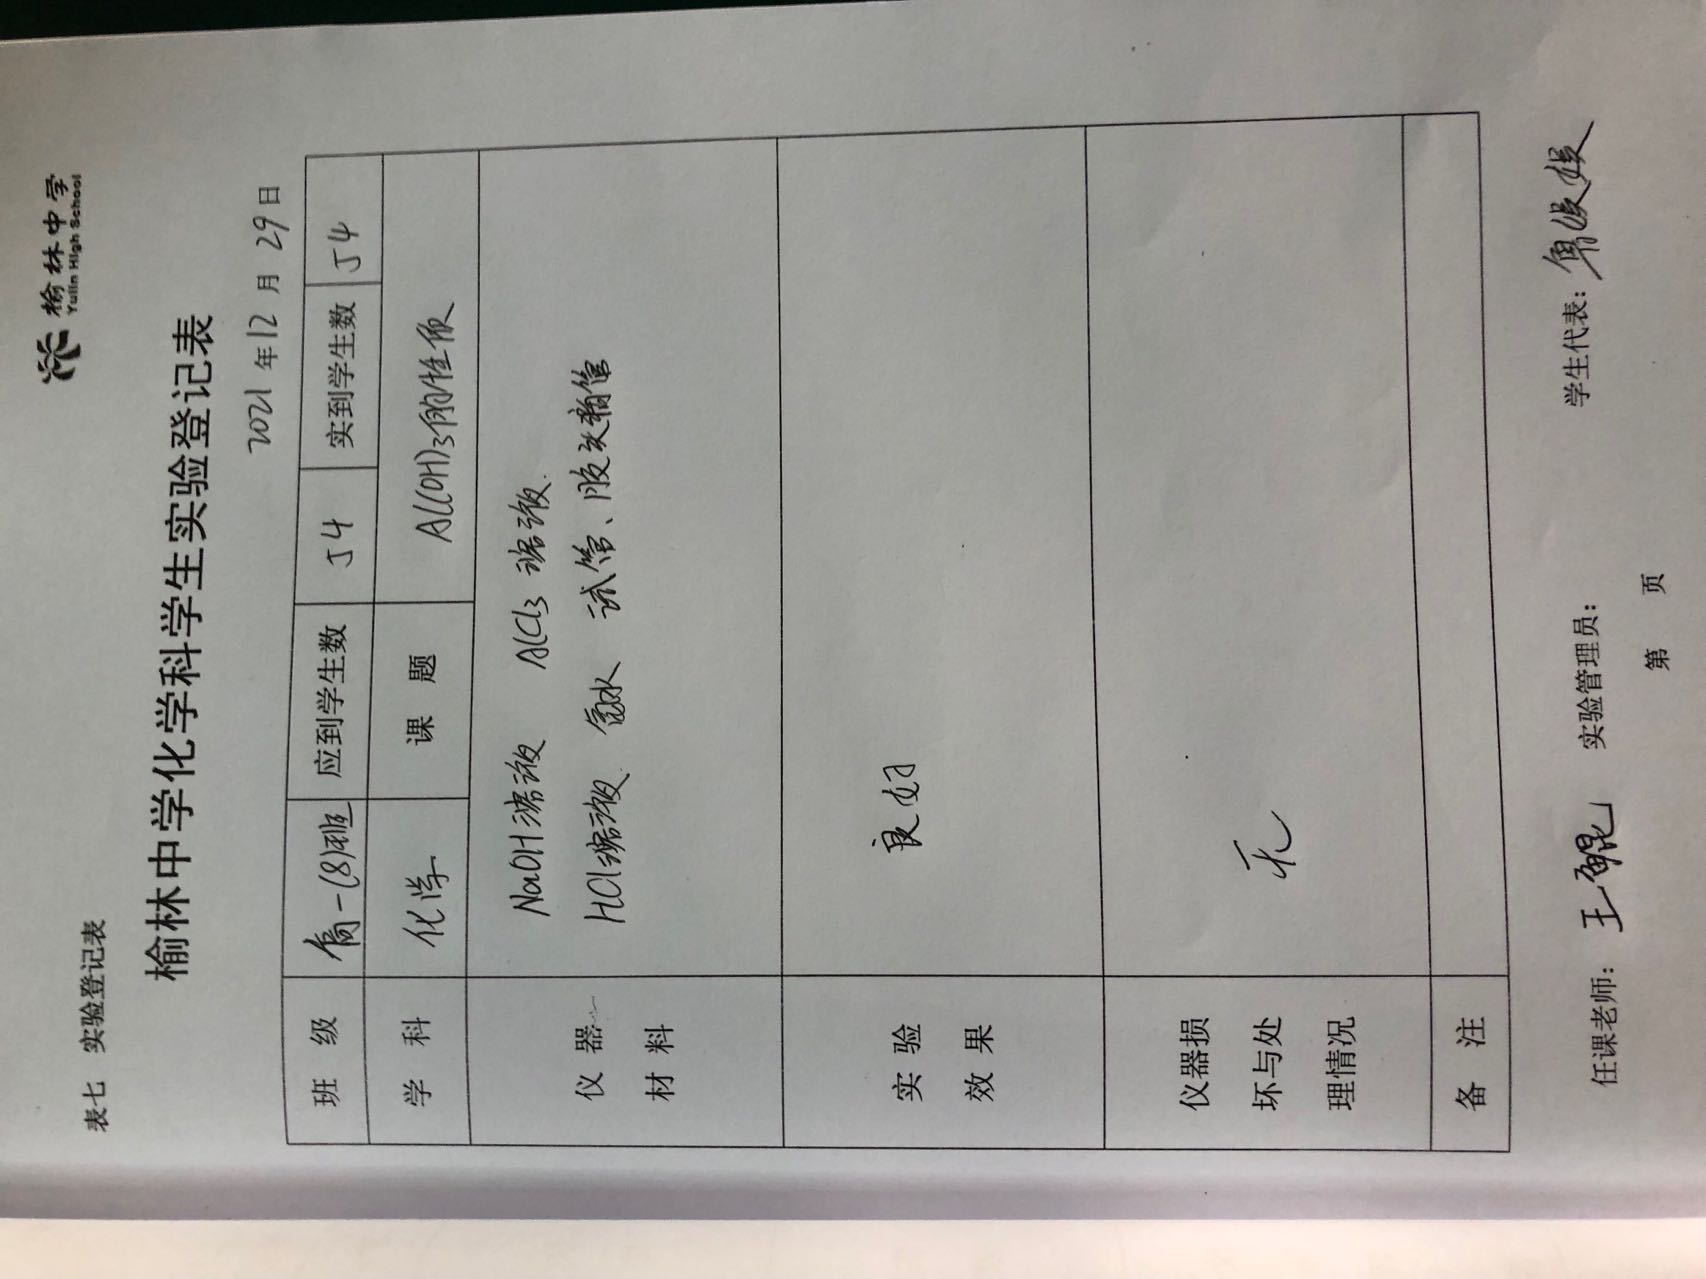 榆林中学
Yulin High School
表七 实验登记表
榆林中学化学科学生实验登记表
2021年12月29日
班级 高一(8)班 应到学生数 54 实到学生数 54
学科 化学 课题 Al(OH)3的性质
仪器材料 NaOH溶液 AlCl3溶液
HCl溶液 氨水 试管、胶头滴管
实验效果 良好
仪器损坏与处理情况 无
备注
任课老师: 王鲲 实验管理员: 学生代表:
第 页